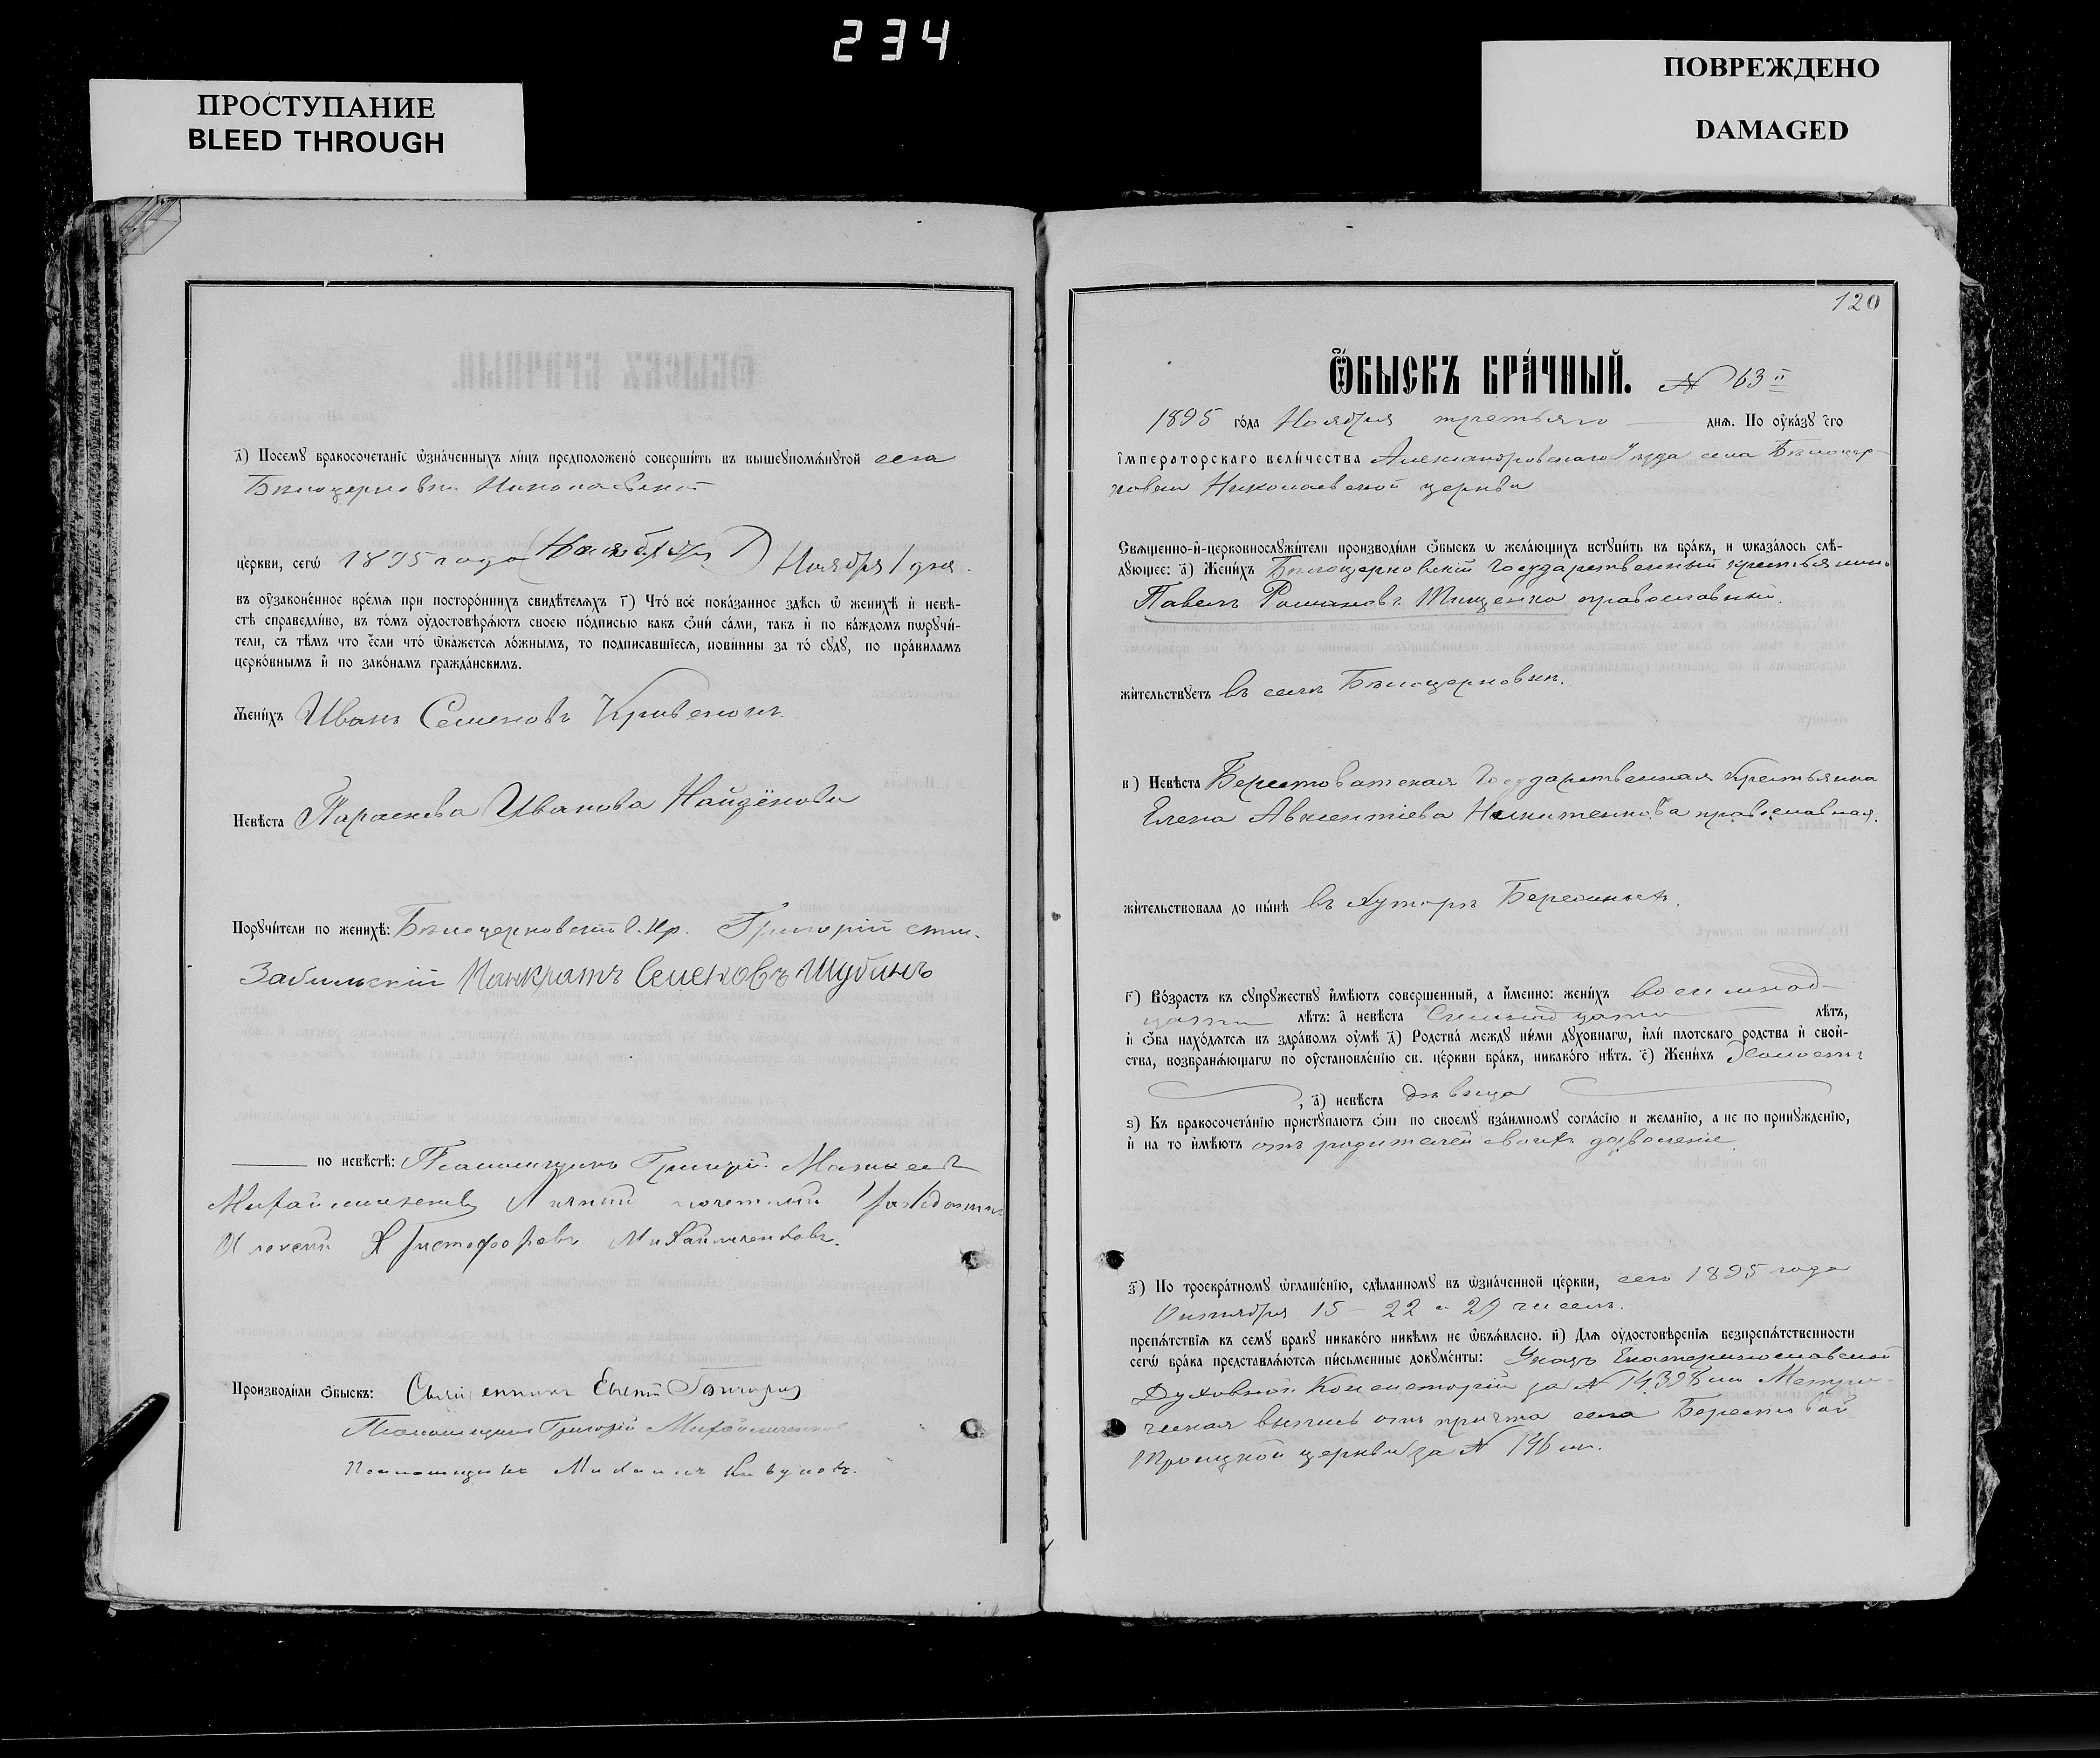 234
ПРОСТУПАНИЕ
BLEED THROUGH
ПОВРЕЖДЕНО
DAMAGED
д҃) Посемꙋ бракосочетанїе ѡ҆зна́ченныхъ ли́цъ предположено̀ соверши́ть въ вышеꙋпомѧ́нꙋтой села
Бѣлоцерковки Николаевской
це́ркви, сегѡ̀ 1895 года (Ноября 1) Ноября 1 дня.
въ оу҆законе́нное вре́мѧ при посторо́ннихъ свидѣ́телѧхъ г҃) Что́ все́ пока́занное здѣ́сь ѡ҆ женихѣ̀ и҆ невѣ́-
стѣ справедли́во, въ то́мъ оу҆достовѣрѧ́ютъ своею по́дписью какъ ѻ҆ни́ са́ми, такъ и҆ по ка́ждомъ порꙋчи́-
тели, съ тѣ́мъ что е҆́сли что́ ѡ҆ка́жетсѧ ло́жнымъ, то подписавшїесѧ, пови́нны за то́ сꙋдꙋ, по пра́виламъ
церко́внымъ и҆ по зако́намъ гражда́нскимъ.
Жени́хъ Иванъ Семеновъ Кривенокъ
Невѣ́ста Параскева Иванова Найдёнова
Порꙋчи́тели по женихѣ̀: Бѣлоцерковскій Г. Кр. Григорій
Забильскій Панкратъ Семеновъ Шубинъ
по невѣ́стѣ: Псаломщикъ Григорій Матвеевъ
Михайличенко Личный почетный Гражданинъ
Алексей Христофоровъ Михайличенковъ.
Производи́ли ѻ҆́быскъ: Священникъ Евгеній
Псаломщикъ Григорій Михайличенко
Псаломщикъ Михаилъ
120
Ѻ҆́БЫСКЪ БРА́ЧНЫЙ. № 63й
1895 го́да Ноября третьяго дня. По оу҆ка́зꙋ є҆гѡ̀
і҆мператорскагѡ вели́чества Александровскаго Уѣзда села Бѣлоцер-
ковки Николаевской церкви
Свѧще́нно-и҆-церковнослꙋжи́тели производи́ли ѻ҆́быскъ ѡ҆ жела́ющихъ встꙋпи́ть въ бра́къ, и ѡ҆каза́лось слѣ́-
дꙋющее: а҃) Жени́хъ Бѣлоцерковскій Государственный крестьянинъ
Павелъ Романовъ Тищенко православный.
жи́тельствꙋетъ въ селѣ Бѣлоцерковкѣ.
в҃) Невѣ́ста Берестоватская Государственная крестьянка
Елена Авксентіева Никитенкова православная.
жи́тельствовала до ны́нѣ въ хуторѣ
г҃) Во́зрастъ къ сꙋпрꙋжествꙋ и҆мѣ́ютъ совершенный, а и҆́менно: жени́хъ восемнад-
цати лѣ́тъ: а҆ невѣ́ста семнадцати лѣ́тъ,
и҆ ѻ҆́ба нахо́дѧтсѧ въ здра́вомъ оу҆мѣ̀ д҃) Родства̀ между ни́ми дꙋховнагѡ, и҆лѝ плотскагѡ родства и҆ свой-
ства, возбранѧ́ющагѡ по оу҆становле́нїю св. це́ркви бра́къ, никако́го нѣ́тъ. є҃) Жени́хъ холостъ
, а҆) невѣ́ста дѣвица
ѕ҃) Къ бракосочета́нїю пристꙋпаютъ ѻ҆нѝ по своемꙋ вза́имномꙋ согла́сїю и желанїю, а не по принꙋжденїю,
и҆ на то и҆мѣ́ютъ отъ родителей своихъ дозволеніе.
з҃) По троекра́тномꙋ ѡ҆глаше́нїю, сдѣ́ланномꙋ въ ѡ҆зна́ченной це́ркви, сего 1895 года
Октября 15 - 22 и 29 чиселъ.
препѧ́тствїѧ къ семꙋ браку никако́го никѣ́мъ не ѡ҆б̾ѧ́влено. и҃) Длѧ оу҆достовѣ́ренїѧ безпрепѧ́тственности
сегѡ̀ бра́ка представлѧ́ютсѧ пи́сьменные докꙋме́нты: Указъ Екатеринославской
Духовной Консисторіи за № 14398 и Метри-
ческая выпись отъ причта села Берестовой
Троицкой церкви за № 196